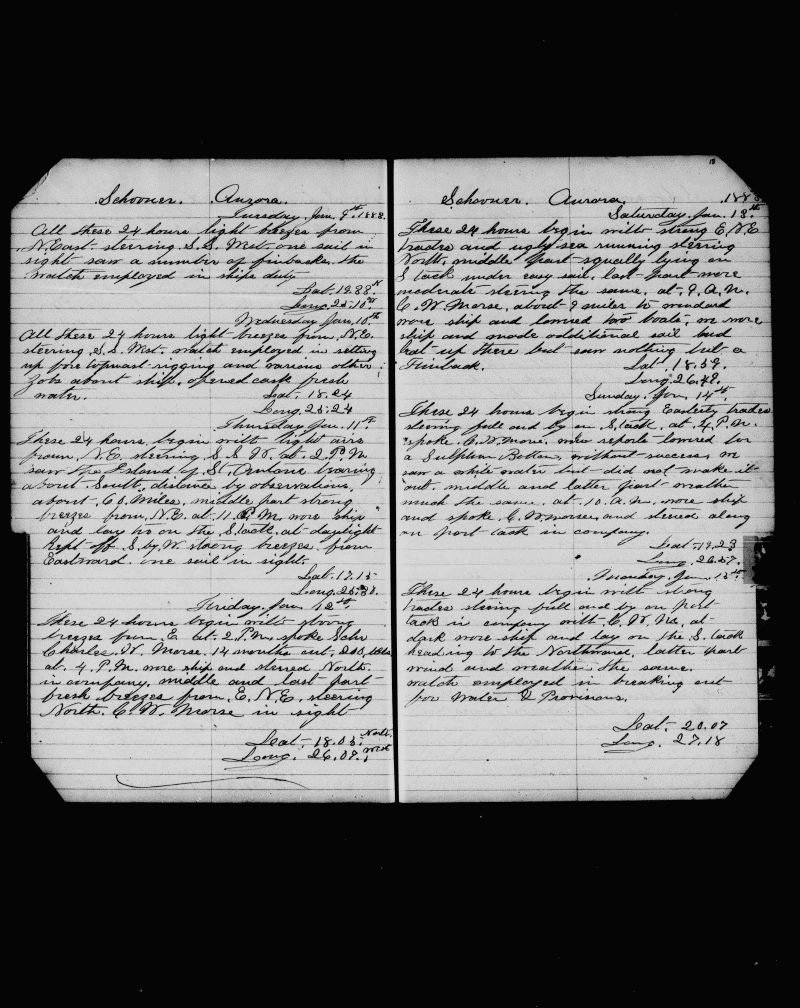 Schooner. Aurora.
Tuesday. Jan. 9th. 1883.
All these 24 hours light breezes from
N. East. steering S.S. West. one sail in
sight saw a number of finbacks. the
watch employed in ships duty
Lat. 19.33 N
Long. 25.10 W
Wednesday Jan. 10th
All these 24 hours light breezes from N.E.
steering S.S. West. watch employed in setting
up fore topmast rigging and various other
Jobs about ship. opened cask fresh
water. Lat. 18.24
Long 25.24
Thursday Jan. 11th
These 24 hours begin with light airs
from N.E. steering S.S.W. at 2. P.M.
saw the Island of St. Antone bearing
about South, distance by observations,
about. 60 Miles, middle part strong
breezes from N.E. at 11. P.M. wore ship
and lay too on the S. tack. at daylight
kept off S. by W. strong breezes from
Eastward. one sail in sight.
Lat. 17.15
Long. 25.38.
Friday. Jan. 12th.
These 24 hours begin with strong
breezes from E. at. 2 P.M. spoke Schr
Charles. W. Morse. 14 months out. 200, bbls
at. 4. P.M. wore ship and steered North.
in company. middle and last part
fresh breezes from. E. N.E. steering
North. C. W. Morse in sight
Lat. 18.03. North.
Long. 26.09. West
Schooner. Aurora. 1883
Saturday. Jan. 13th.
These 24 hours begin with strong E.N.E
trades and ugly sea running steering
North, middle part squally lying on
S tack under easy sail, last part more
moderate steering the same. at. 9. A.M.
C. W. Morse. about 9 miles to windard
wore ship and lowered two boats, we wore
ship and made additional sail and
beat up there but saw nothing but a
Finback. Lat. 18.59.
Long. 26.49.
Sunday. Jan. 14th.
These 24 hours begin strong Easterly trades
steering full and by on S. tack. at. 4. P.M.
spoke. C. W. Morse. who reports lowered for
a Sulpher Bottom, without success, we
saw a white water but did not make it
out. middle and latter part weather
much the same. at. 10. A.M. wore ship
and spoke. C. W. Morse. and steered along
on port tack in company.
Lat. 19.23
Long. 26.57.
Monday. Jan. 15th.
These 24 hours begin with strong
trades steering full and by on port
tack in company with C. W. Ms. at
dark wore ship and lay on the S. tack
heading to the Northward, latter part
wind and weather the same.
watch employed in breaking out
for Water & Provisions.
Lat. 20.07
Long. 27.18